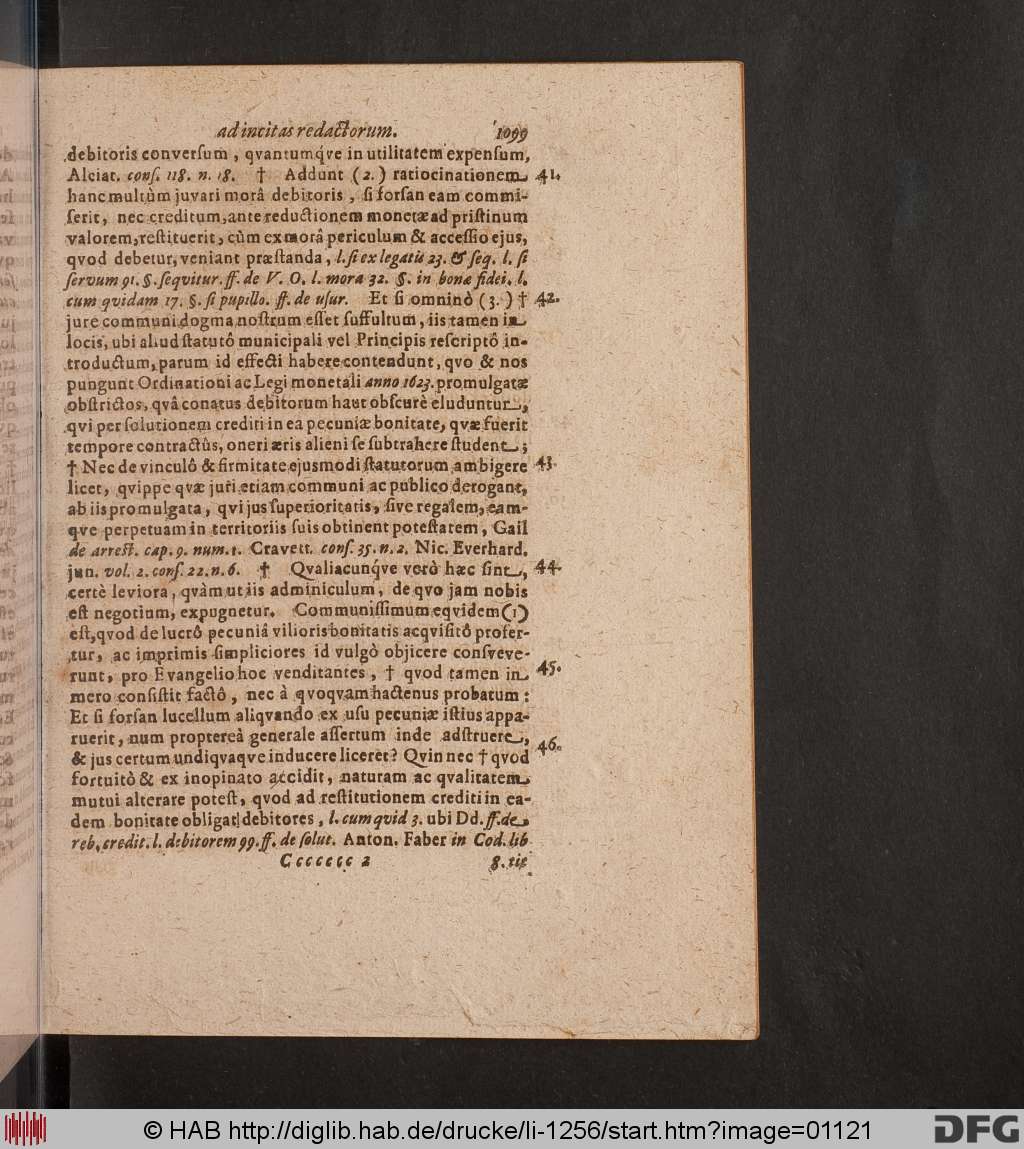 ad incitas redactorum. 1099
debitoris conversum, qvantumq́ve in utilitatem expensum,
Alciat. conſ. 118. n. 18. † Addunt (2.) ratiocinationem 41.
hanc multùm juvari morâ debitoris, ſi forſan eam commi-
ſerit, nec creditum, ante reductionem monetæ ad priſtinum
valorem, reſtituerit, cùm ex morâ periculum & acceſſio ejus,
qvod debetur, veniant præſtanda, l. ſi ex legatis 23. & ſeq. l. ſi
ſervum 91. §. ſeqvitur. ff. de V. O. l. mora 32. §. in bonæ fidei. l.
cum qvidam 17. §. ſi pupillo. ff. de uſur. Et ſi omninò (3.) † 42.
jure communi dogma noſtrum eſſet ſuffultum, iis tamen in
locis, ubi aliud ſtatutô municipali vel Principis reſcriptô in-
troductum, parum id effecti habere contendunt, qvo & nos
pungunt Ordinationi ac Legi monetali anno 1623. promulgatæ
obſtrictos, qvâ conatus debitorum haut obſcurè eluduntur,
qvi per ſolutionem crediti in ea pecuniæ bonitate, qvæ fuerit
tempore contractûs, oneri æris alieni ſe ſubtrahere ſtudent;
† Nec de vinculô & firmitate ejusmodi ſtatutorum ambigere 43.
licet, qvippe qvæ juri etiam communi ac publico derogant,
ab iis promulgata, qvi jus ſuperioritatis, ſive regalem, eam-
qve perpetuam in territoriis ſuis obtinent poteſtatem, Gail
de arreſt. cap. 9. num. 1. Cravett. conſ. 35. n. 2. Nic. Everhard.
jun. vol. 2. conſ. 22. n. 6. † Qvaliacunqve verò hæc ſint, 44.
certè leviora, qvàm ut iis adminiculum, de qvo jam nobis
eſt negotium, expugnetur. Communiſſimum eqvidem (1)
eſt, qvod de lucrô pecuniâ vilioris bonitatis acqviſitô profer-
tur, ac imprimis ſimpliciores id vulgò objicere conſveve-
runt, pro Evangelio hoc venditantes, † qvod tamen in 45.
mero conſiſtit factô, nec à qvoqvam hactenus probatum:
Et ſi forſan lucellum aliqvando ex uſu pecuniæ iſtius appa-
ruerit, num proptereà generale aſſertum inde adſtruere,
& jus certum undiqvaqve inducere liceret? Qvin nec † qvod 46.
fortuitò & ex inopinato accidit, naturam ac qvalitatem
mutui alterare poteſt, qvod ad reſtitutionem crediti in ea-
dem bonitate obligat debitores, l. cum qvid 3. ubi Dd. ff. de
reb. credit. l. debitorem 99. ff. de ſolut. Anton. Faber in Cod. lib
Ccccccc 2 8. tit.
© HAB http://diglib.hab.de/drucke/li-1256/start.htm?image=01121
DFG